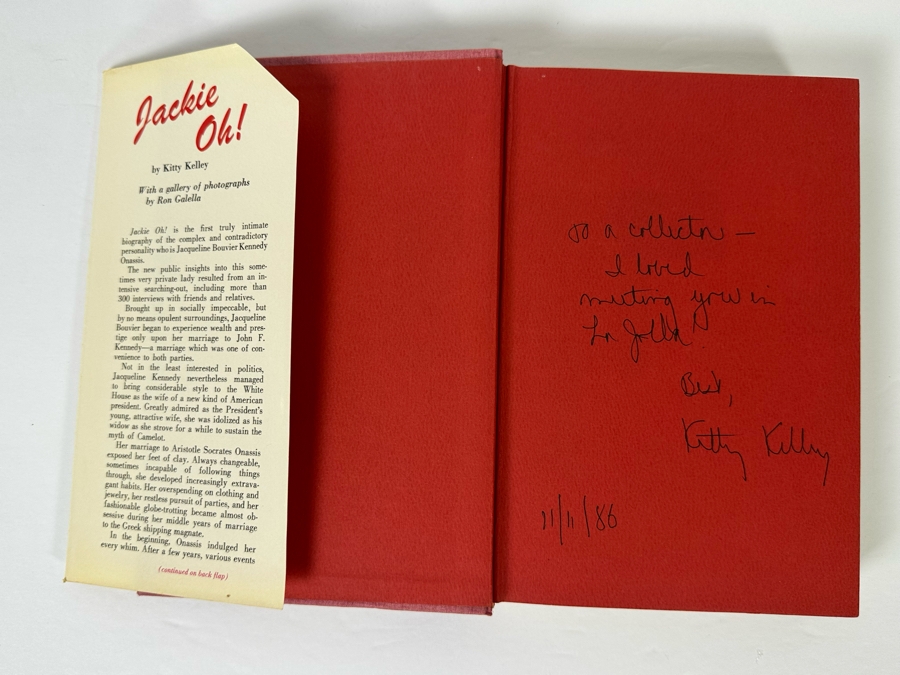 Jackie
Oh!
by Kitty Kelley
With a gallery of photographs
by Ron Galella
Jackie Oh! is the first truly intimate
biography of the complex and contradictory
personality who is Jacqueline Bouvier Kennedy
Onassis.
The new public insights into this some-
times very private lady resulted from an in-
tensive searching-out, including more than
300 interviews with friends and relatives.
Brought up in socially impeccable, but
by no means opulent surroundings, Jacqueline
Bouvier began to experience wealth and pres-
tige only upon her marriage to John F.
Kennedy—a marriage which was one of con-
venience to both parties.
Not in the least interested in politics,
Jacqueline Kennedy nevertheless managed
to bring considerable style to the White
House as the wife of a new kind of American
president. Greatly admired as the President's
young, attractive wife, she was idolized as his
widow as she strove for a while to sustain the
myth of Camelot.
Her marriage to Aristotle Socrates Onassis
exposed her feet of clay. Always changeable,
sometimes incapable of following things
through, she developed increasingly extrava-
gant habits. Her overspending on clothing and
jewelry, her restless pursuit of parties, and her
fashionable globe-trotting became almost ob-
sessive during her middle years of marriage
to the Greek shipping magnate.
In the beginning, Onassis indulged her
every whim. After a few years, various events
(continued on back flap)
To a collector —
I loved
meeting you in
La Jolla
Best,
Kitty Kelley
11/11/86